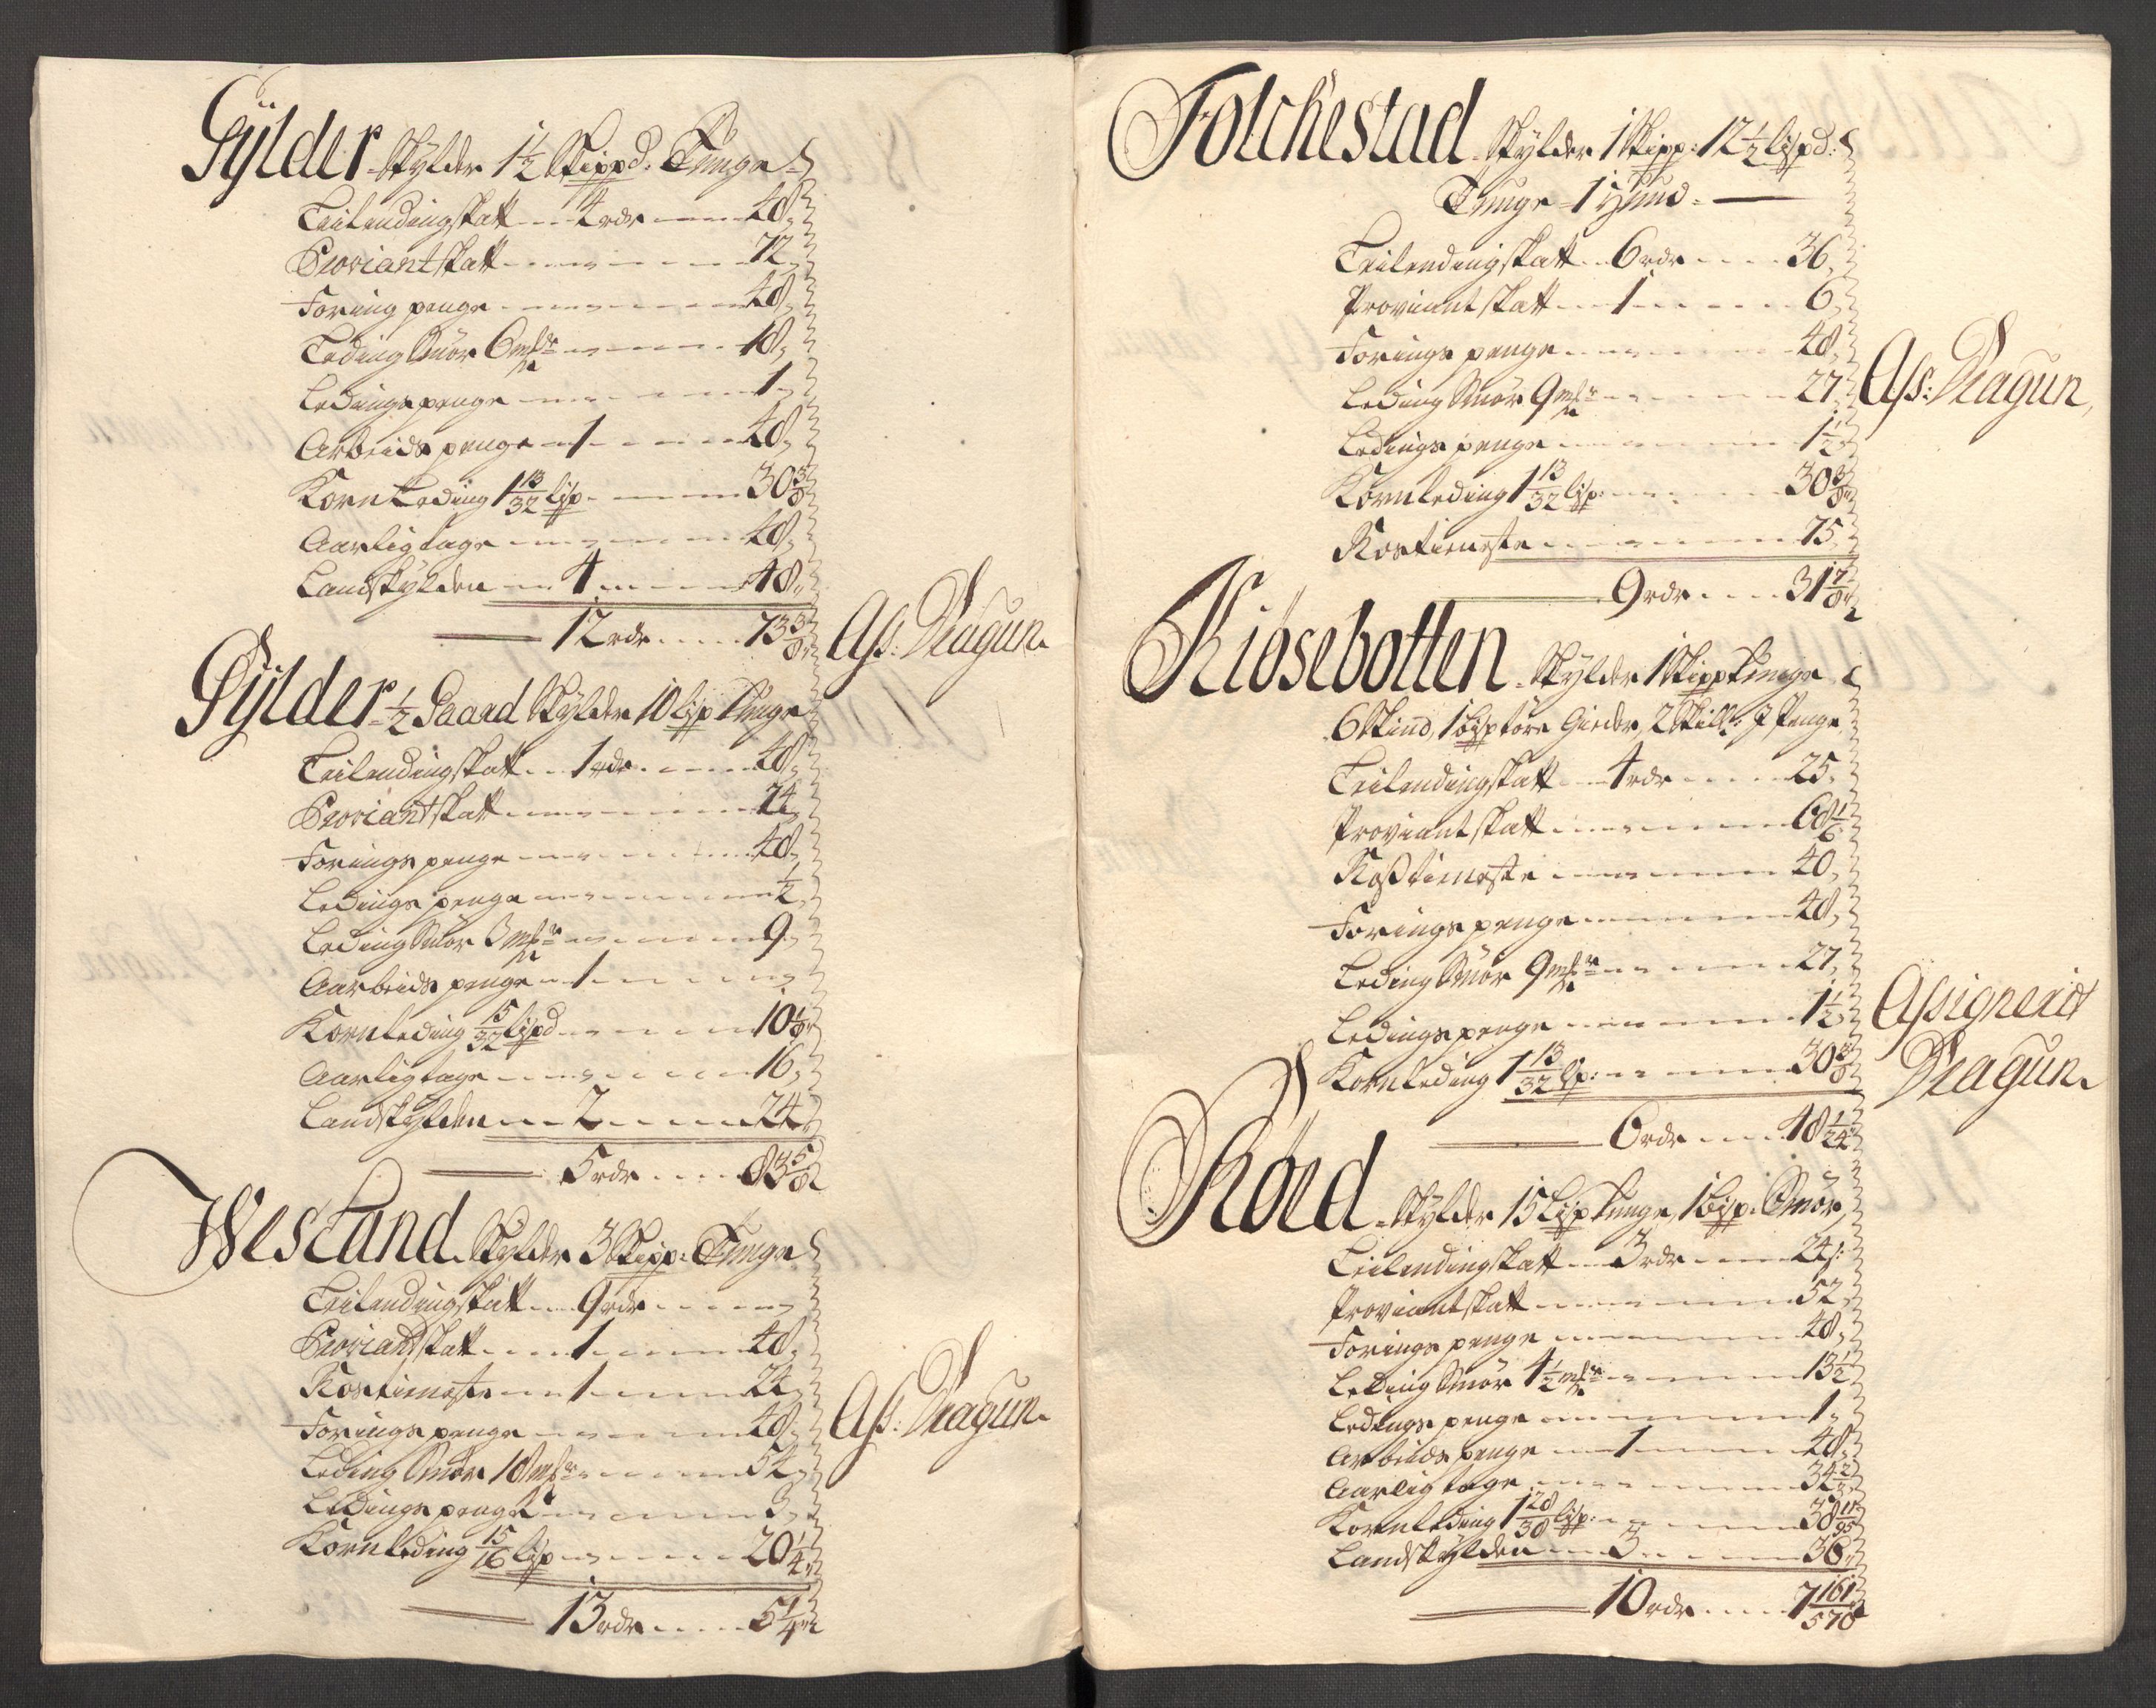 Gÿlder Skylder 1½ Skippd: Tunge
Leilendingskatt - - 4 rdr - - - 48,
Proviantskatt - - - - - - 72,
Foring penge - - - - - - 48,
Leding Smör 6 mkr - - - - 18,
Ledings penge - - - - - 1,
Arbeids penge - - 1 - - - - 48,
Korn Leding 1 13/32 Lisp - - - - 30 3/8
Aarligtage - - - - - - 48,
Landskylden - - 4 - - - - 48,
12 rdr - - - 73 3/8
Ass: Dragun.
Gÿlder - ½ Gaard Skylder 10 Lisp Tunge
Leilendingskatt - - 1 rdr - - - - 48,
Proviantskatt - - - - - - 24,
Forings penge - - - - - - 48,
Ledings penge - - - - - - ½,
Leding Smör 3 mkr - - - - 9,
Aarbeids penge - - 1 - - - -
Kornleding 15/32 Lispd - - - - 10 1/8
Aarligtage - - - - - - 16,
Landskylden - - 2 - - - - 24,
5 rdr - - - 83 5/8
Westand Skylder 3 Skipp: Tunge
Leilendingskatt - - 9 rdr - - - -
Proviantskatt - - - 1 - - - - 48,
Rostieneste - - - 1 - - - - 24,
Forings penge - - - - - - 48,
Leding Smör 18 mkr - - - - 54,
Ledings penge - - - - - 3,
Kornleding 15/16 Lisp - - - - 20 ¼
13 rdr - - - 5 ¼
Ass: Dragun.
Folchestad Skylder 1 Skipp: 12½ Lispd:
Tunge - 1 Hund -
Leilendingskatt - - 6 rdr - - - 36,
Proviant skatt - - 1 - - - - 6,
Forings penge - - - - - - 48,
Leding Smör 9 mkr - - - - 27,
Ledings penge - - - - - 1½
Kornleding 1 13/32 Lisp: - - - - 30 3/8
Rostieneste - - - - - - 75,
9 rdr - - - 31 7/8
Ass: Dragun,
Kiosebotten - Skylder 1 Skipp Tunge
6 Skind, 1 Bisp töre Gieder, 2 Skill: J Penge
Leilendingskatt - - 4 rdr - - - 25,
Proviantskatt - - - - - - 68 1/6
Rosstieneste - - - - - - 40,
Forings penge - - - - - - 48,
Leding Smör 9 mkr - - - - 27,
Ledings penge - - - - - 1½
Kornleding 1 13/32 Lp: - - - - 30 3/8
6 rdr - - - 48 1/24
Assigneridt
Dragun.
Roed - Skylder 15 Lisp Tunge, 1 Bisp: Smör,
Leilendingskatt - - 3 rdr - - - 24 s:
Proviantskatt - - - - - - 52,
Forings penge - - - - - - 48,
Leding Smör 4½ mkr - - - - 13½
Ledings penge - - - - - 1,
Arbeids penge - - - 1 - - - 48,
Aarlig tage - - - - - - 34 2/3
Kornleding 1 28/38 Lisp: - - - - 38 11/95
Landskylden - - 3 - - - - 36,
10 rdr - - - 7 161/570